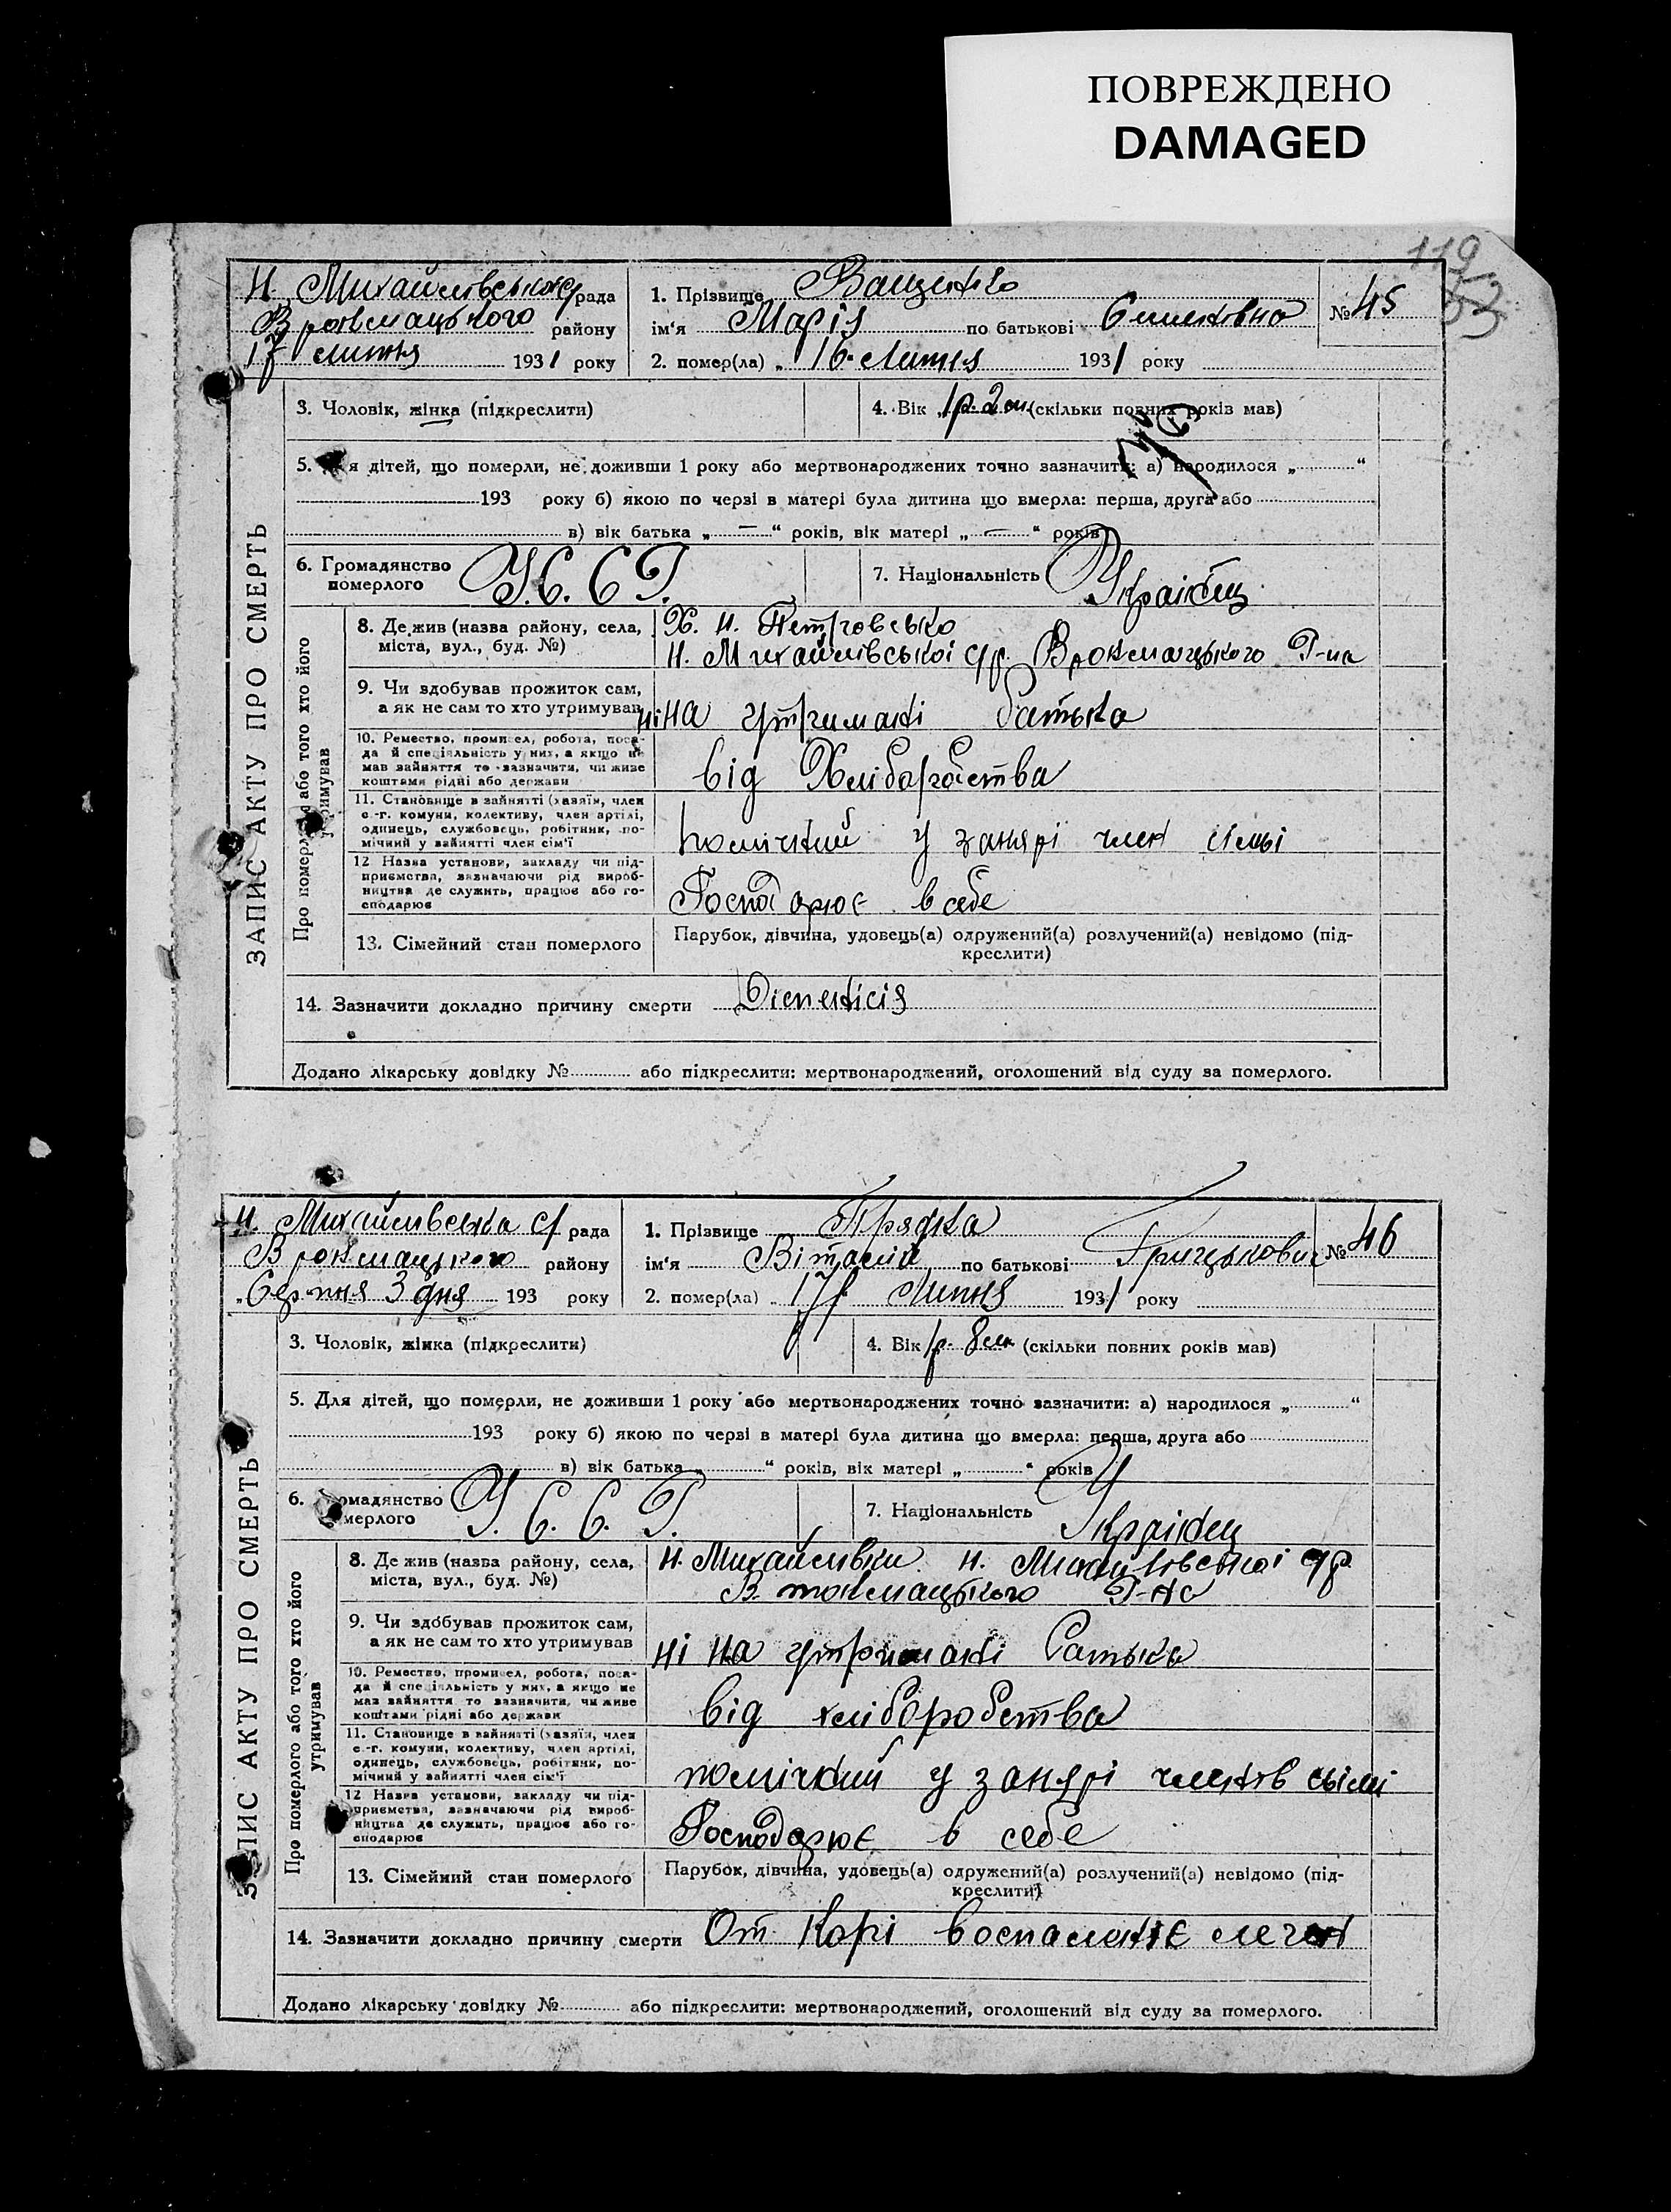 ПОВРЕЖДЕНО
DAMAGED
119
53
Н. Михайлівська с/рада
В токмацького району
17 липня 1931 року
1. Прізвище Ващенко
ім'я Марія по батькові Семенівна
№ 45
2. помер(ла) „ 16 липня 1931 року
3. Чоловік, жінка (підкреслити)
4. Вік „ 1 р. 2 м. (скільки повних років мав)
5. я дітей, що померли, не доживши 1 року або мертвонароджених точно зазначити: а) народилося „ “
193 року б) якою по черзі в матері була дитина що вмерла: перша, друга або
в) вік батька „ — “ років, вік матері „ — “ років
6. Громадянство померлого У. С. С. Р.
7. Національність Українец
ЗАПИС АКТУ ПРО СМЕРТЬ
Про померлого або того хто його утримував
8. Де жив (назва району, села, міста, вул., буд. №) Х. Н. Петровсько
Н. Михайлівської с/р. В токмацького Р-на
9. Чи здобував прожиток сам, а як не сам то хто утримував ні на утримані батька
10. Ремество, промисел, робота, посада й спеціяльність у них, а якщо не мав зайняття то зазначити, чи живе коштами рідні або держави від Хліборобства
11. Становище в зайнятті (хазяїн, член с.-г. комуни, колективу, член артілі, одинець, службовець, робітник, помічний у зайнятті член сім'ї помічний у занярі член сімьі
12 Назва установи, закладу чи підприємства, зазначаючи рід виробництва де служить, працює або господарює Господарює в себе
13. Сімейний стан померлого Парубок, дівчина, удовець(а) одружений(а) розлучений(а) невідомо (підкреслити)
14. Зазначити докладно причину смерти Діенктісія
Додано лікарську довідку № або підкреслити: мертвонароджений, оголошений від суду за померлого.
Н. Михайлівська с/ рада
В токмацького району
„ Серпня 3 дня 193 року
1. Прізвище Прядка
ім'я Віталій по батькові Грицькович
№ 46
2. помер(ла) „ 17 Липня 1931 року
3. Чоловік, жінка (підкреслити)
4. Вік 1 р. 8 м (скільки повних років мав)
5. Для дітей, що померли, не доживши 1 року або мертвонароджених точно зазначити: а) народилося „ “
193 року б) якою по черзі в матері була дитина що вмерла: перша, друга або
в) вік батька „ “ років, вік матері „ “ років
6. омадянство мерлого У. С. С. Р.
7. Національність Українец
ЗАПИС АКТУ ПРО СМЕРТЬ
Про померлого або того хто його утримував
8. Де жив (назва району, села, міста, вул., буд. №) Н. Михайлівки Н. Михайлівської с/р.
В. токмацького Р-на
9. Чи здобував прожиток сам, а як не сам то хто утримував ні на утримані батька
10. Ремество, промисел, робота, посада й спеціяльність у них, а якщо не мав зайняття то зазначити, чи живе коштами рідні або держави від хліборобства
11. Становище в зайнятті (хазяїн, член с.-г. комуни, колективу, член артілі, одинець, службовець, робітник, помічний у зайнятті член сім'ї помічний у занярі членів сьімі
12 Назва установи, закладу чи підприємства, зазначаючи рід виробництва де служить, працює або господарює Господарює в себе
13. Сімейний стан померлого Парубок, дівчина, удовець(а) одружений(а) розлучений(а) невідомо (підкреслити)
14. Зазначити докладно причину смерти От корі воспаленіє леген
Додано лікарську довідку № або підкреслити: мертвонароджений, оголошений від суду за померлого.